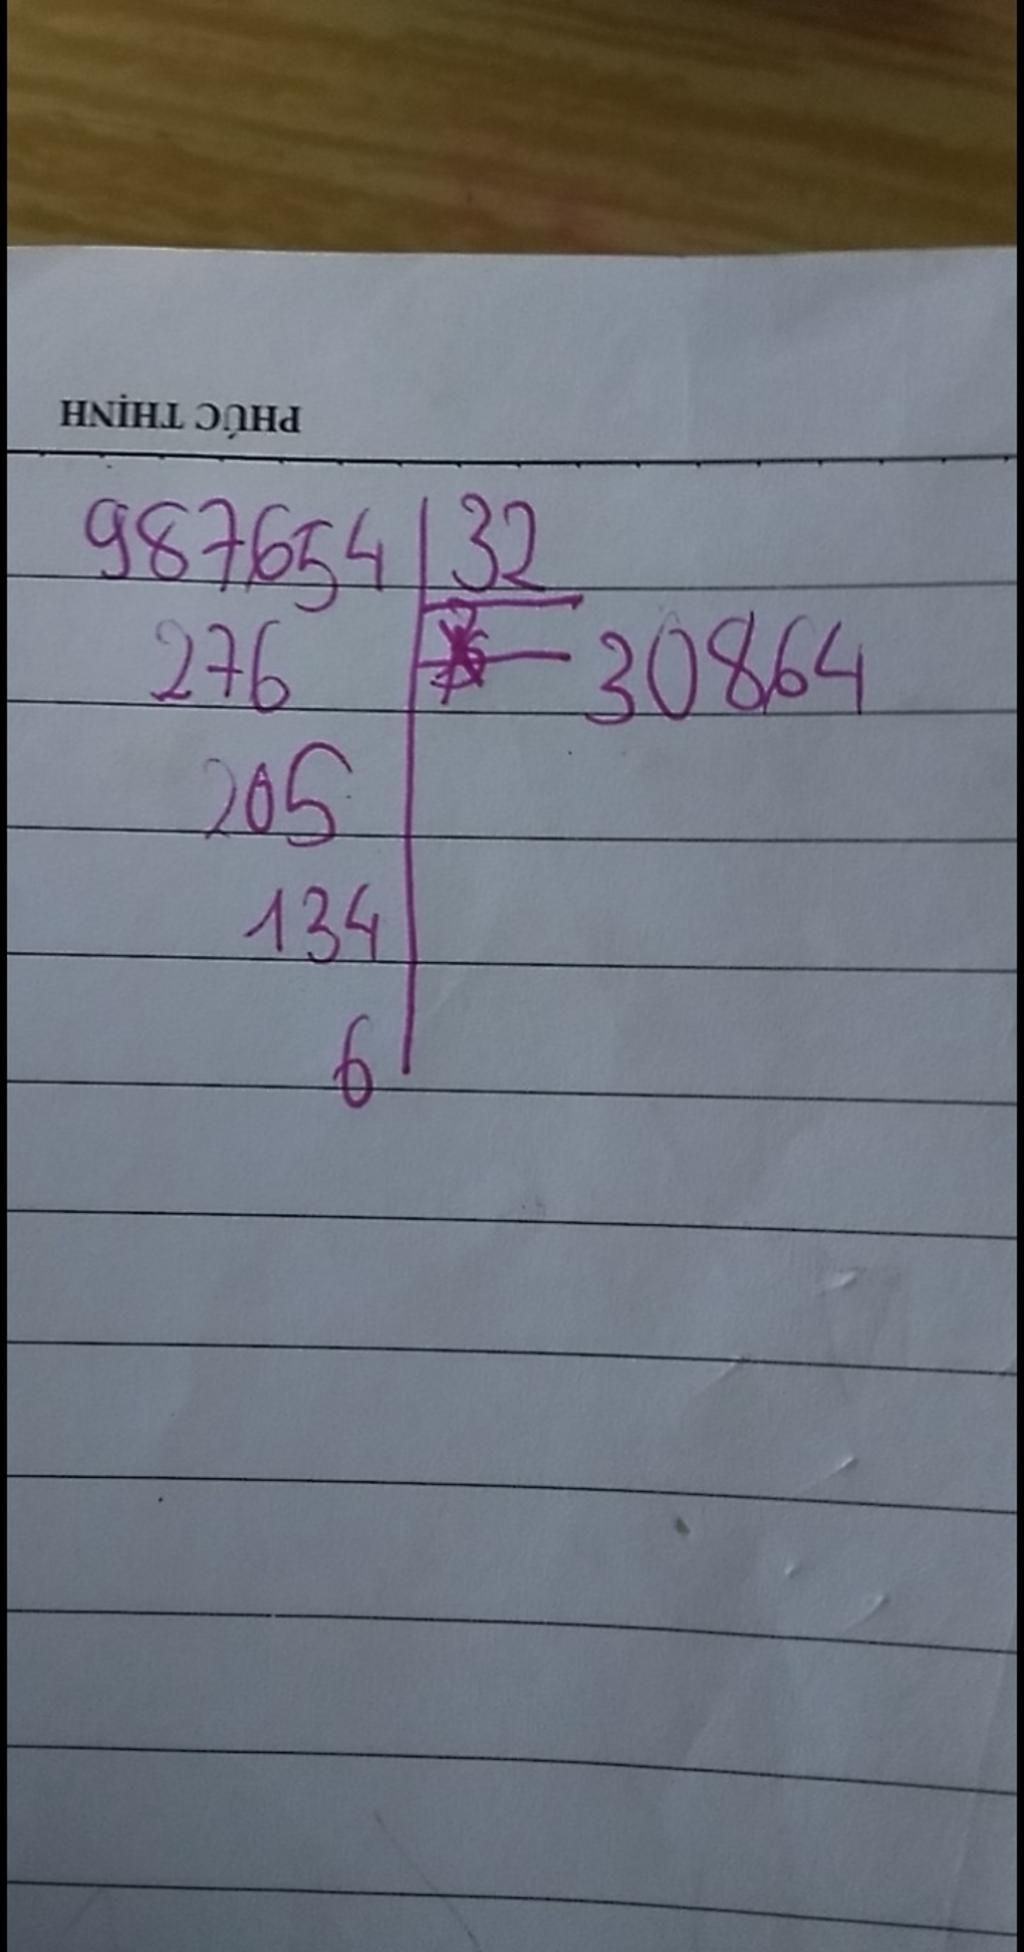 PHÚC THỊNH
987654 32
276 30864
205
134
6